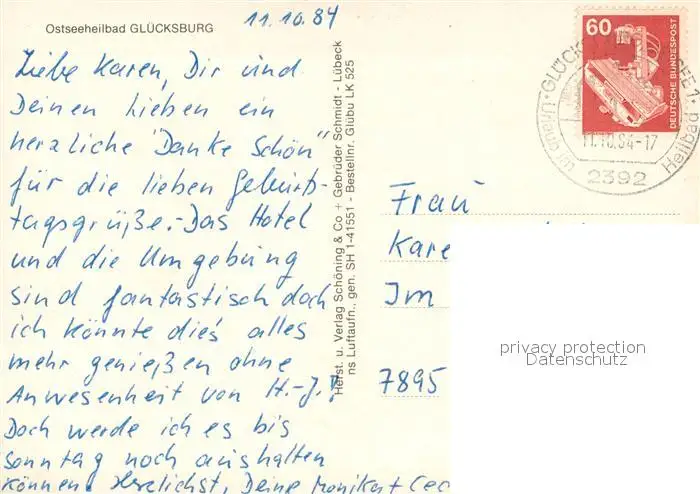 Ostseeheilbad GLÜCKSBURG
11.10.84
Liebe Karen, Dir und
Deinen Lieben ein
herzliche "Danke Schön"
für die lieben Geburts-
tagsgrüße.-Das Hotel
und die Umgebung
sind fantastisch doch
ich könnte dies alles
mehr genießen ohne
Anwesenheit von H.-J.!
Doch werde ich es bis
Sonntag noch aushalten
können. Herzlichst, Deine Monika +
Herst. u. Verlag Schöning & Co + Gebrüder Schmidt - Lübeck
ns Luftaufn., gen. SH 1-41551 - Bestellnr. Glübu LK 525
60
DEUTSCHE BUNDESPOST
Urlaub im
Heilbad
11.10.84-17
2392
Frau
Kare
Im
7895
privacy protection
Datenschutz